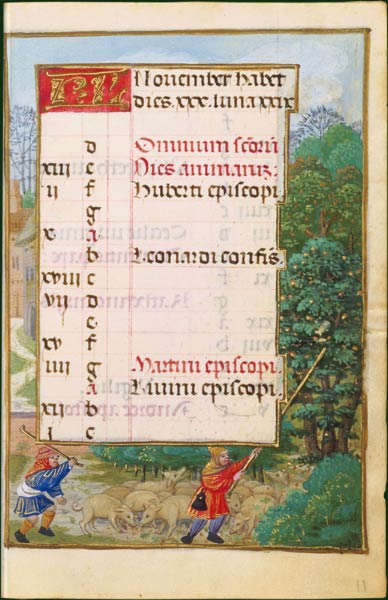 KL Nouember habet
dies .xxx. luna xxix
d Omnium scorū
xiii e Dies animarū.
ii f Huberti episcopi.
g
x a
b Leonardi confes.
xviii c
vii d
e
xv f
iiii g Martini episcopi.
a Liuini episcopi.
xii b
i c
11